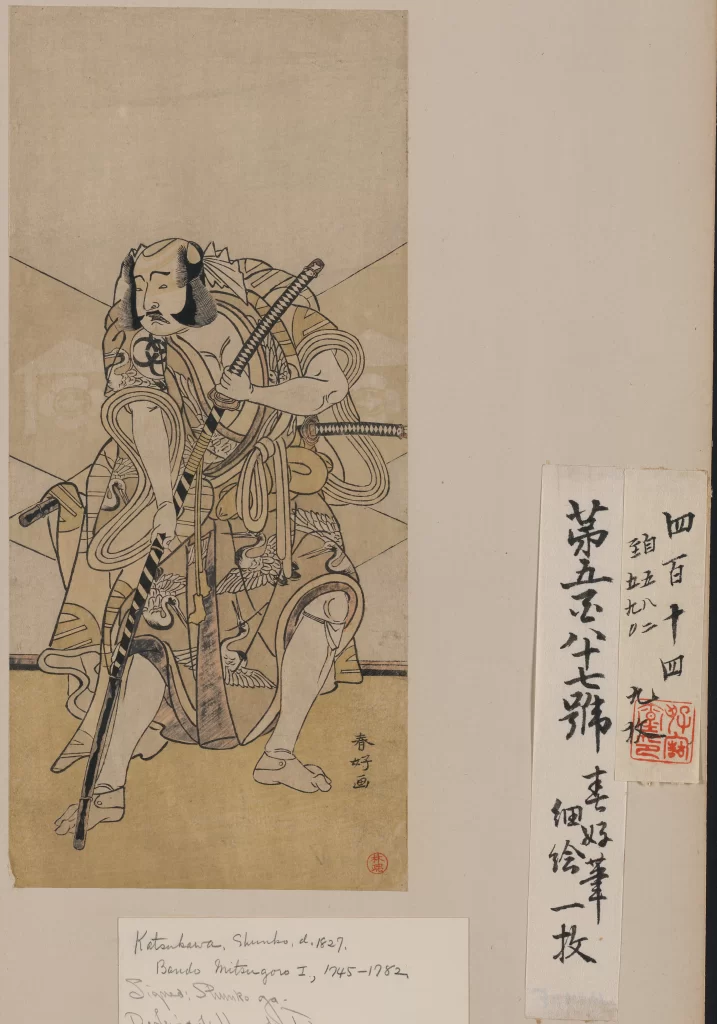 春好画
四百十四
自五八二
至五九〇
九枚
第五百八十七號
春好筆
細絵一枚
Katsukawa, Shunko, d. 1827.
Bando Mitsugoro I, 1745-1782
Signed: Shunko ga.